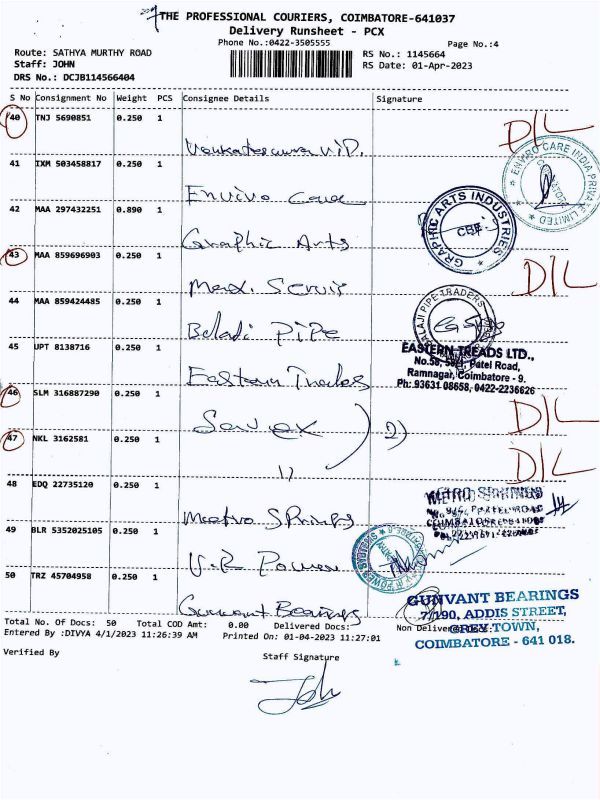 THE PROFESSIONAL COURIERS, COIMBATORE-641037
Delivery Runsheet - PCX
Phone No.:0422-3505555 Page No.:4
Route: SATHYA MURTHY ROAD RS No.: 1145664
Staff: JOHN RS Date: 01-Apr-2023
DRS No.: DCJB114566404
S No Consignment No Weight PCS Consignee Details Signature
40 TNJ 5690851 0.250 1 D/L
41 IXM 503458817 0.250 1
ENVIRO CARE INDIA PRIVATE LIMITED
Enviro Care
42 MAA 297432251 0.890 1
GRAPHIC ARTS INDUSTRIES
CBE
Graphic Arts
43 MAA 859696903 0.250 1 D/L
44 MAA 859424485 0.250 1
BALAJI PIPE TRADERS
Balaji Pipe
45 UPT 8138716 0.250 1
EASTERN TREADS LTD.,
Patel Road,
Ramnagar, Coimbatore - 9.
Ph: 93631 08658, 0422-2236626
Eastern Treads
46 SLM 316887290 0.250 1 D/L
Savex 2)
47 NKL 3162581 0.250 1 D/L
1)
48 EDQ 22735120 0.250 1
METRO SPRINGS
Metro Springs
49 BLR 5352025105 0.250 1
POWER SYSTEMS
V.R Power
50 TRZ 45704958 0.250 1
GUNVANT BEARINGS
7/190, ADDIS STREET,
GREY TOWN,
COIMBATORE - 641 018.
Gunvant Bearings
Total No. Of Docs: 50 Total COD Amt: 0.00 Delivered Docs: Non Delivered
Entered By :DIVYA 4/1/2023 11:26:39 AM Printed On: 01-04-2023 11:27:01
Verified By Staff Signature
John